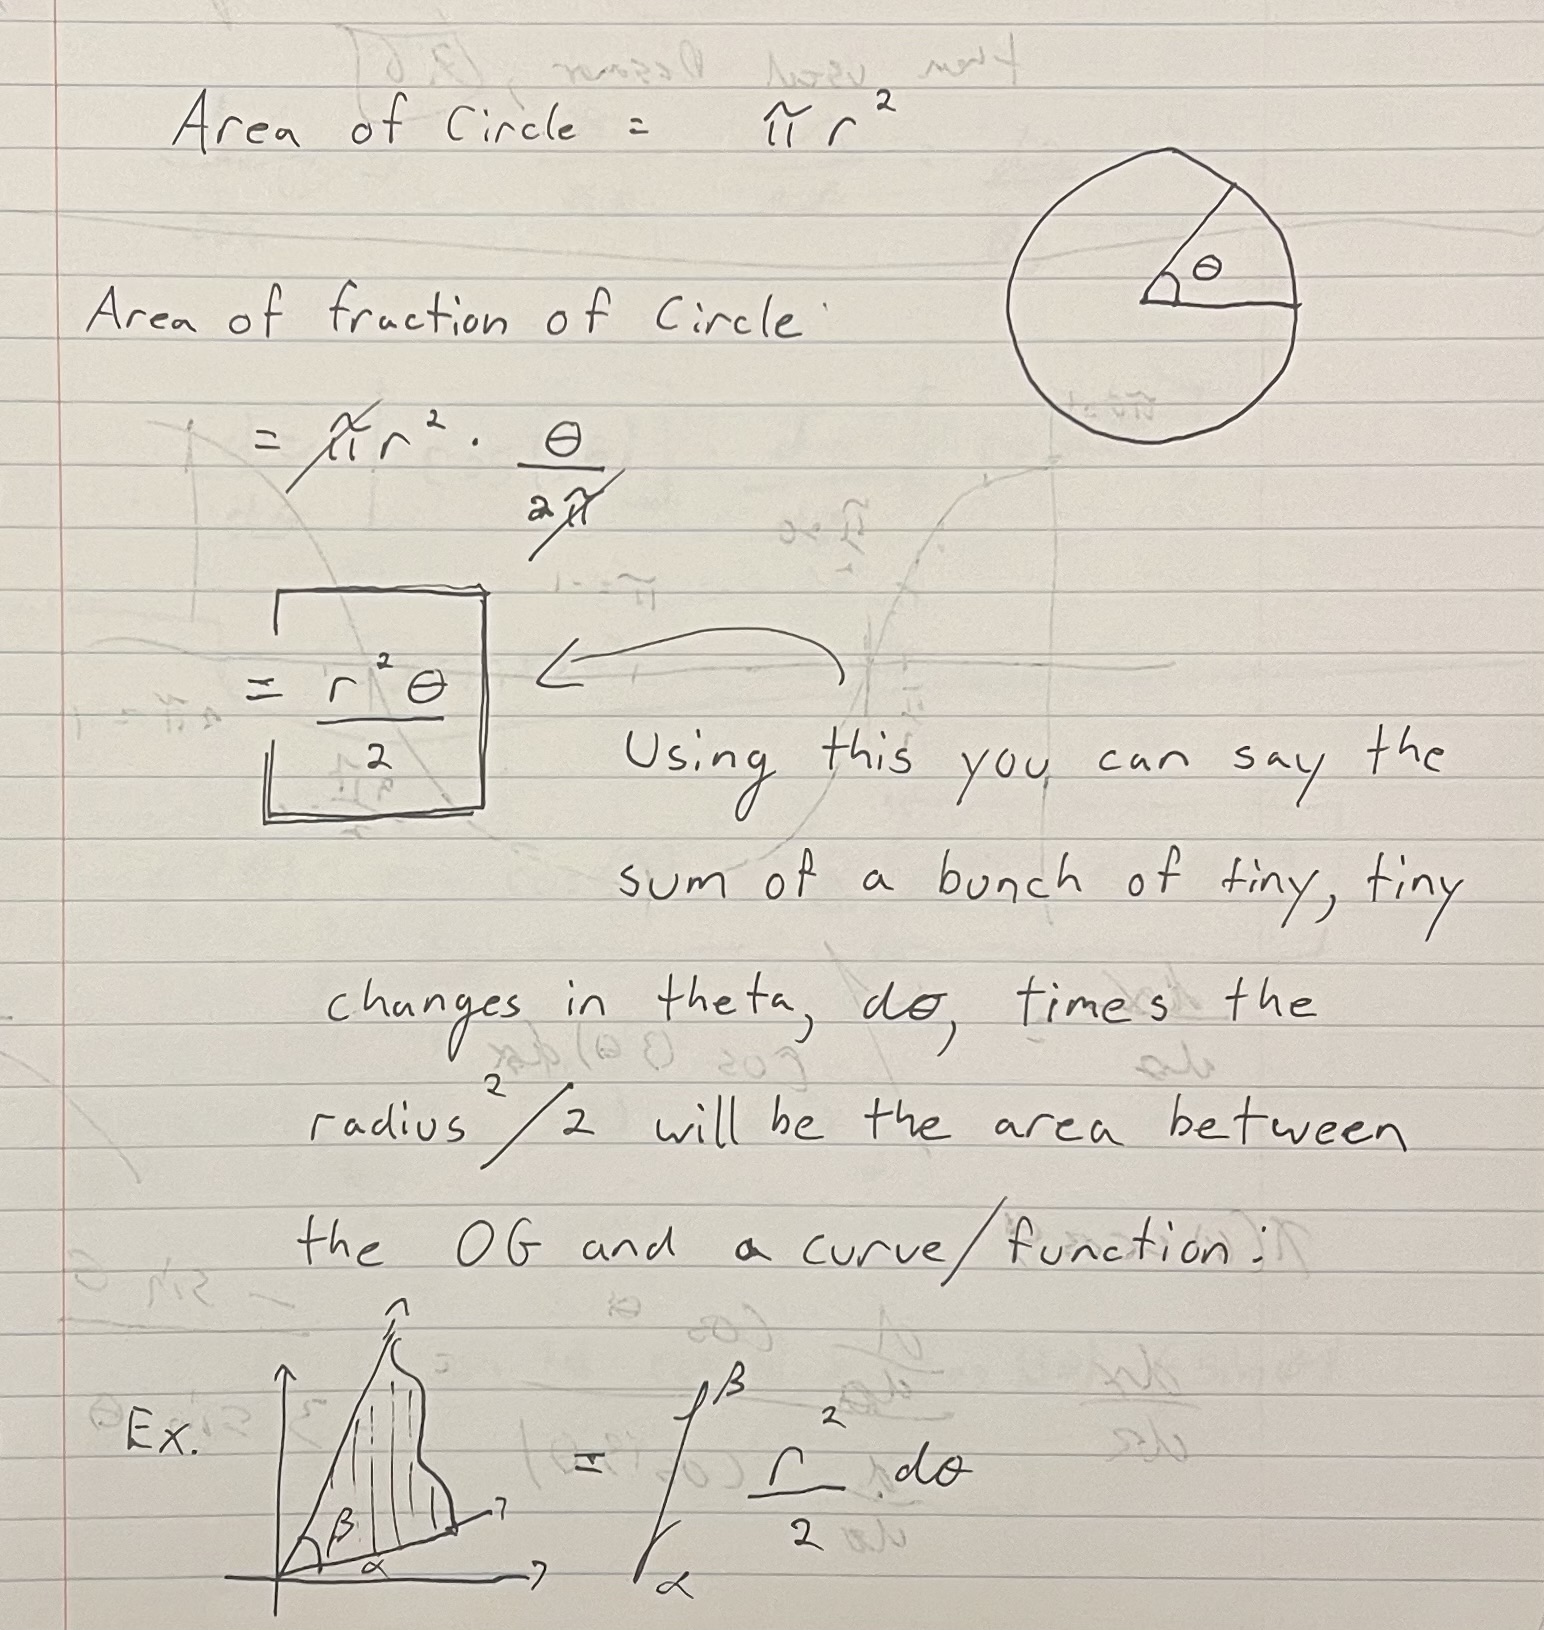 Area of Circle = πr²
θ
Area of fraction of Circle
= πr² · θ/2π
= r²θ/2
Using this you can say the
sum of a bunch of tiny, tiny
changes in theta, dθ, times the
radius²/2 will be the area between
the OG and a curve/function:
Ex. β α = ∫ β α r²/2 · dθ